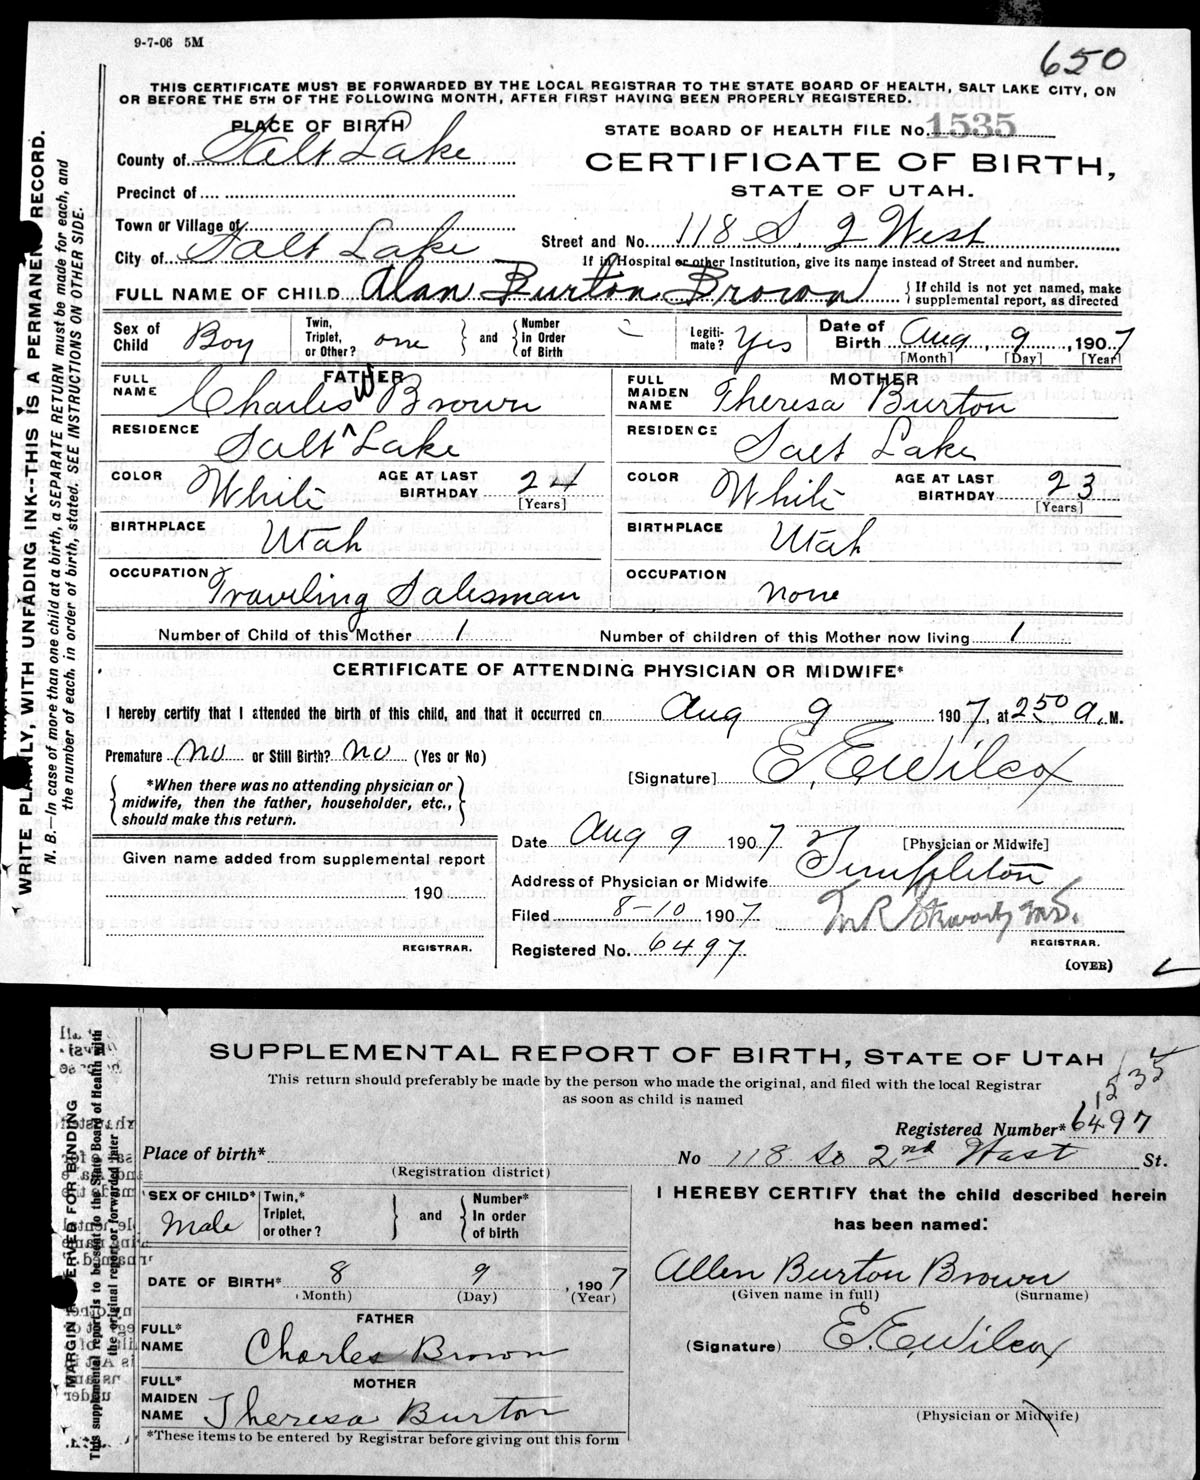 9-7-06 5M
650
THIS CERTIFICATE MUST BE FORWARDED BY THE LOCAL REGISTRAR TO THE STATE BOARD OF HEALTH, SALT LAKE CITY, ON
OR BEFORE THE 5TH OF THE FOLLOWING MONTH, AFTER FIRST HAVING BEEN PROPERLY REGISTERED.
PLACE OF BIRTH
STATE BOARD OF HEALTH FILE No. 1535
County of Salt Lake
CERTIFICATE OF BIRTH,
Precinct of
STATE OF UTAH.
Town or Village of
Street and No. 118 S. 2 West
City of Salt Lake
If in Hospital or other Institution, give its name instead of Street and number.
FULL NAME OF CHILD Alan Burton Brown { If child is not yet named, make supplemental report, as directed
Sex of Child Boy Twin, Triplet, or Other? one } and { Number in Order of Birth Legiti-mate? Yes Date of Birth Aug 9, 1907
[Month] [Day] [Year]
FATHER
FULL NAME Charles W Brown
RESIDENCE Salt Lake
COLOR White AGE AT LAST BIRTHDAY 24 [Years]
BIRTHPLACE Utah
OCCUPATION Traveling Salesman
MOTHER
FULL MAIDEN NAME Theresa Burton
RESIDENCE Salt Lake
COLOR White AGE AT LAST BIRTHDAY 23 [Years]
BIRTHPLACE Utah
OCCUPATION none
Number of Child of this Mother 1 Number of children of this Mother now living 1
CERTIFICATE OF ATTENDING PHYSICIAN OR MIDWIFE*
I hereby certify that I attended the birth of this child, and that it occurred on Aug 9 1907, at 2 50 a. M.
Premature no or Still Birth? no (Yes or No)
[Signature] E. E. Wilcox
[Physician or Midwife]
{ *When there was no attending physician or
midwife, then the father, householder, etc.,
should make this return. }
Date Aug 9 1907
Given name added from supplemental report
190
REGISTRAR.
Address of Physician or Midwife Templeton
Filed 8-10 1907
REGISTRAR.
Registered No. 6497
(OVER)
WRITE PLAINLY, WITH UNFADING INK--THIS IS A PERMANENT RECORD.
N. B.—In case of more than one child at a birth, a SEPARATE RETURN must be made for each, and
the number of each, in order of birth, stated. SEE INSTRUCTIONS ON OTHER SIDE.
SUPPLEMENTAL REPORT OF BIRTH, STATE OF UTAH
1535
This return should preferably be made by the person who made the original, and filed with the local Registrar
as soon as child is named
Registered Number* 6497
Place of birth* No 118 So 2nd West St.
(Registration district)
SEX OF CHILD* Male Twin,* Triplet, or other? } and { Number* In order of birth
DATE OF BIRTH* 8 9, 1907
(Month) (Day) (Year)
FATHER
FULL* NAME Charles Brown
MOTHER
FULL* MAIDEN NAME Theresa Burton
*These items to be entered by Registrar before giving out this form
I HEREBY CERTIFY that the child described herein
has been named:
Allen Burton Brown
(Given name in full) (Surname)
(Signature) E. E. Wilcox
(Physician or Midwife)
MARGIN RESERVED FOR BINDING
This supplemental report is to be sent to the State Board of Health with
the original report or forwarded later